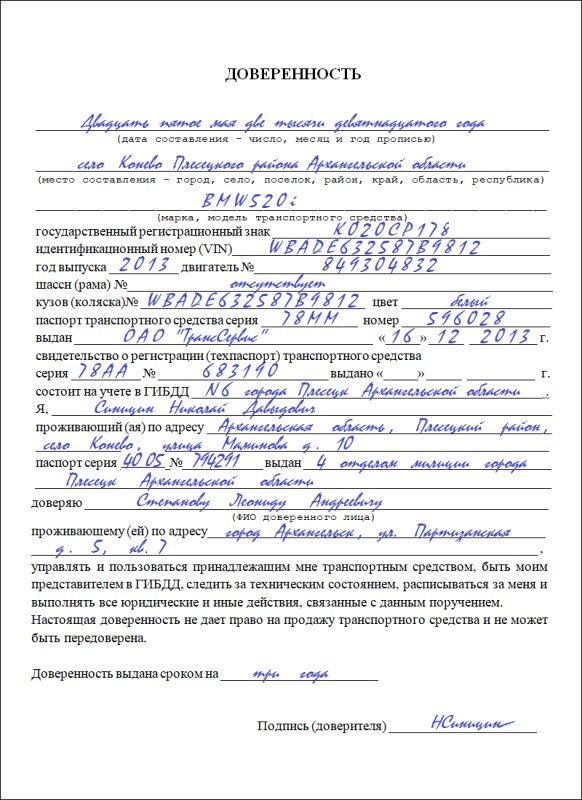 ДОВЕРЕННОСТЬ
Двадцать пятое мая две тысячи девятнадцатого года
(дата составления – число, месяц и год прописью)
село Конево Плесецкого района Архангельской области
(место составления – город, село, поселок, район, край, область, республика)
BMW520i
(марка, модель транспортного средства)
государственный регистрационный знак К020СР178
идентификационный номер (VIN) WBADE632587B9812
год выпуска 2013 двигатель № 849304832
шасси (рама) № отсутствует
кузов (коляска)№ WBADE632587B9812 цвет белый
паспорт транспортного средства серия 78ММ номер 596028
выдан ОАО "ТрансСервис" « 16 » 12 2013 г.
свидетельство о регистрации (техпаспорт) транспортного средства
серия 78АА № 683190 выдано «____» ______ ______ г.
состоит на учете в ГИБДД N6 города Плесецк Архангельской области .
Я, Синицин Николай Давыдович
проживающий (ая) по адресу Архангельская область, Плесецкий район,
село Конево, улица Малинова д. 10
паспорт серия 40 05 № 794291 выдан 4 отделом милиции города
Плесецк Архангельской области
доверяю Степанову Леониду Андреевичу
(ФИО доверенного лица)
проживающему (ей) по адресу город Архангельск, ул. Партизанская
д. 5, кв. 7 ,
управлять и пользоваться принадлежащим мне транспортным средством, быть моим
представителем в ГИБДД, следить за техническим состоянием, расписываться за меня и
выполнять все юридические и иные действия, связанные с данным поручением.
Настоящая доверенность не дает право на продажу транспортного средства и не может
быть передоверена.
Доверенность выдана сроком на три года
Подпись (доверителя) НСиницин